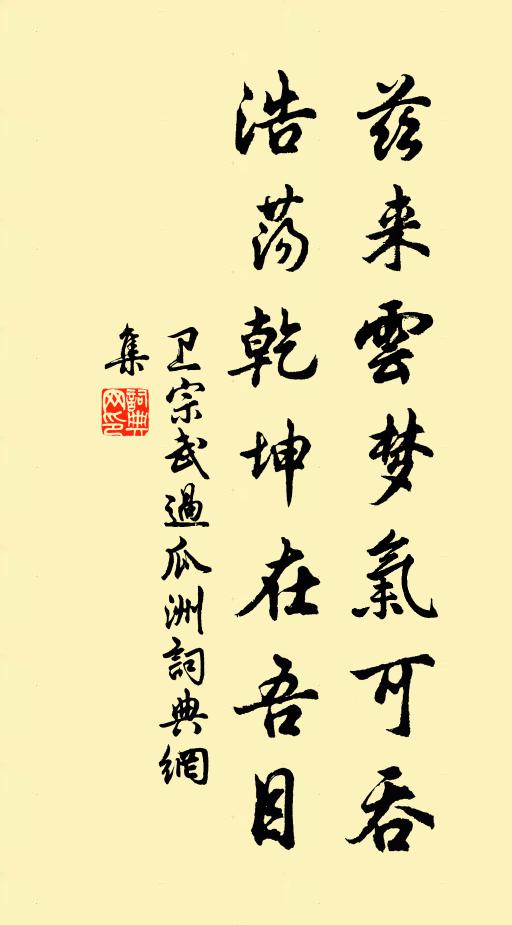 兹来雲梦氣可吞
浩荡乾坤在吾目
卫宗武過瓜洲詞典網
集
詞典
网印